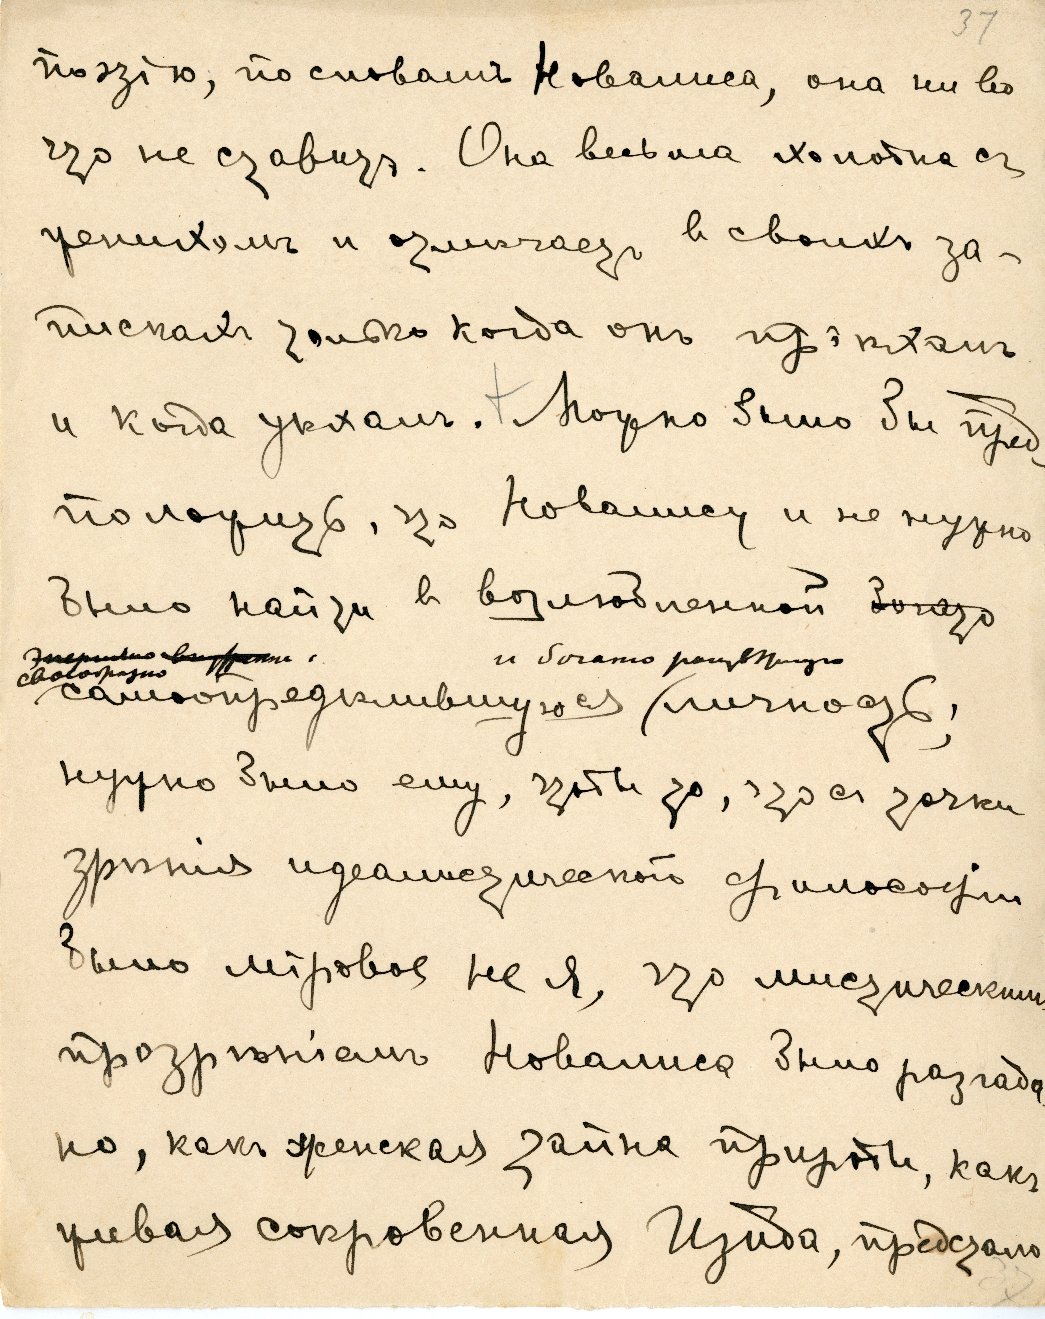 37
поэзію, по словамъ Новалиса, она ни во
что не ставитъ. Она весьма холодна съ
женихомъ и отмѣчаетъ в своихъ за-
пискахъ только когда онъ пріѣхалъ
и когда уѣхалъ. + Можно было бы пред-
положить, что Новалису и не нужно
было найти в возлюбленной богато
своеобразно и богато расцвѣтшую
самоопредѣлившуюся личность;
нужно было ему, чтобы то, что съ точки
зрѣнія идеалистической философіи
было міровое не я, что мистическимъ
прозрѣніемъ Новалиса было разгада-
но, какъ женская тайна природы, какъ
живая сокровенная Изида, предстало